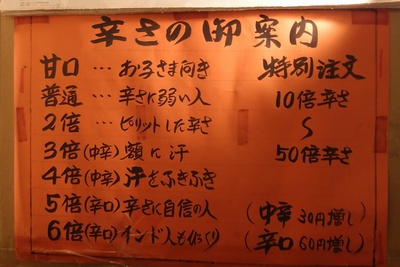 辛さの御案内
甘口 … お子さま向き
普通 … 辛さに弱い人
2倍 … ピリットした辛さ
3倍(中辛) 額に汗
4倍(中辛) 汗をふきふき
5倍(辛口) 辛さに自信の人
6倍(辛口) インド人もびっくり
特別注文
10倍辛さ
〜
50倍辛さ
(中辛 30円増し)
(辛口 60円増し)